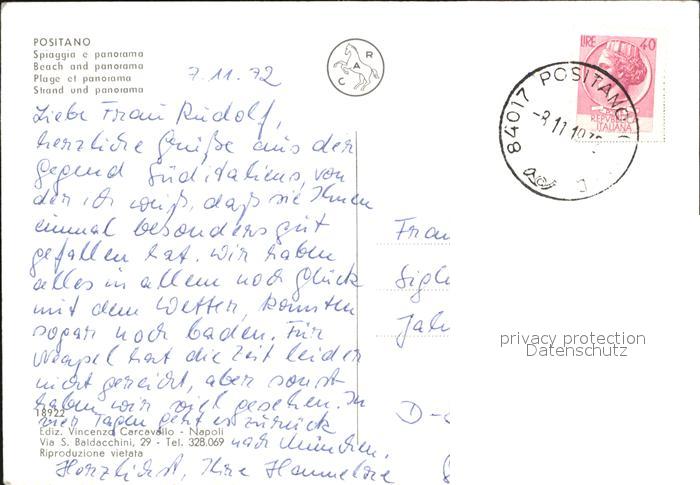 POSITANO
Spiaggia e panorama
Beach and panorama
Plage et panorama
Strand und panorama
C A R
7.11.72
LIRE 40
REPVBBLICA
ITALIANA
84017 POSITANO
-8 11 197
Liebe Frau Rudolf,
herzliche Grüße aus der
Gegend Süditaliens, von
der ich weiß, daß sie Ihnen
einmal besonders gut
gefallen hat. Wir haben
alles in allem noch Glück
mit dem Wetter, konnten
sogar noch baden. Für
Neapel hat die Zeit leider
nicht gereicht, aber sonst
haben wir viel gesehen. In
vier Tagen geht es zurück
nach München.
Herzlichst, Ihre Hannelore
Frau
Sigl
Jah
D-
privacy protection
Datenschutz
18922
Ediz. Vincenzo Carcavallo - Napoli
Via S. Baldacchini, 29 - Tel. 328.069
Riproduzione vietata